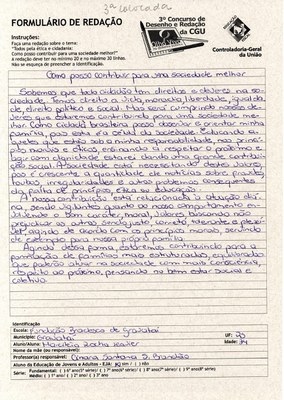 3ª colocada
FORMULÁRIO DE REDAÇÃO
3º Concurso de
Desenho e Redação
da CGU
Controladoria-Geral
da União
Instruções:
Faça uma redação sobre o tema:
"Todos pela ética e cidadania:
Como posso contribuir para uma sociedade melhor?"
A redação deve ter no mínimo 20 e no máximo 30 linhas.
Não se esqueça de preencher a identificação.
Como posso contribuir para uma sociedade melhor
Sabemos que todo cidadão tem direitos e deveres na so-
ciedade. Temos direito a vida, moradia, liberdade, igualda-
de, direito político e social. Mas será cumprindo nossos de-
veres que estaremos contribuindo para uma sociedade me-
lhor. Como cidadã brasileira posso observar e orientar minha
família, pois esta é a célula da sociedade. Educando
que estão sob a minha responsabilidade, nos princí-
pios morais e éticos, ensinando a respeitar o próximo e
agir com dignidade estarei dando uma grande contribui-
ção social. A sociedade está necessitando desses valores,
pois é crescente a quantidade de notícias sobre fraudes,
roubos, irregularidades e outros problemas consequentes
da falta de princípios ética na educação.
A nossa contribuição está relacionada a atuação diá-
ria, sendo vigilantes quanto ao nosso comportamento
o bom caráter, moral, valores, buscando não
prejudicar ao outro, sendo justo, correto,
agindo de acordo com os princípios morais, servindo
de exemplo para nossa própria família.
Agindo dessa forma, estaremos contribuindo para a
formação de famílias mais estruturadas, equilibradas
que poderão atuar na sociedade com mais consciência,
respeito ao próximo, pensando no bem estar social e
coletivo.
Identificação
Escola: Fundação Bradesco de Gravataí
Município: Gravataí
UF: RS
Aluno/Aluna:
Idade:
Nome da mãe (ou responsável):
Professor(a) responsável:
Aluno da Educação de Jovens e Adultos - EJA: sim / ( ) não
Série:
Fundamental:
Médio: